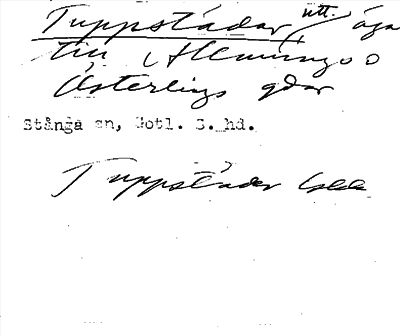 Tuppstädar, utt. äga
till Hemings o
Österlings gdar
Stånga sn, Gotl. S. hd.
Tuppstäder